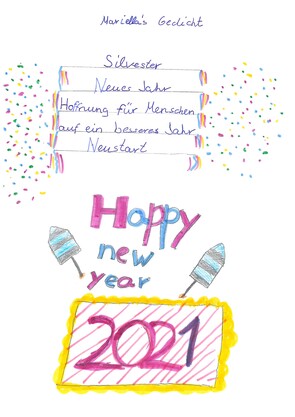 Mariella's Gedicht
Silvester
Neues Jahr
Hoffnung für Menschen
auf ein besseres Jahr
Neustart
Happy
new
year
2021